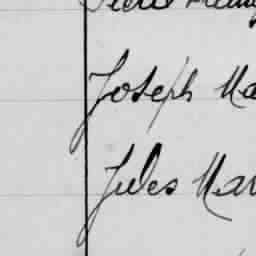 Joseph Ma
Jules Mar